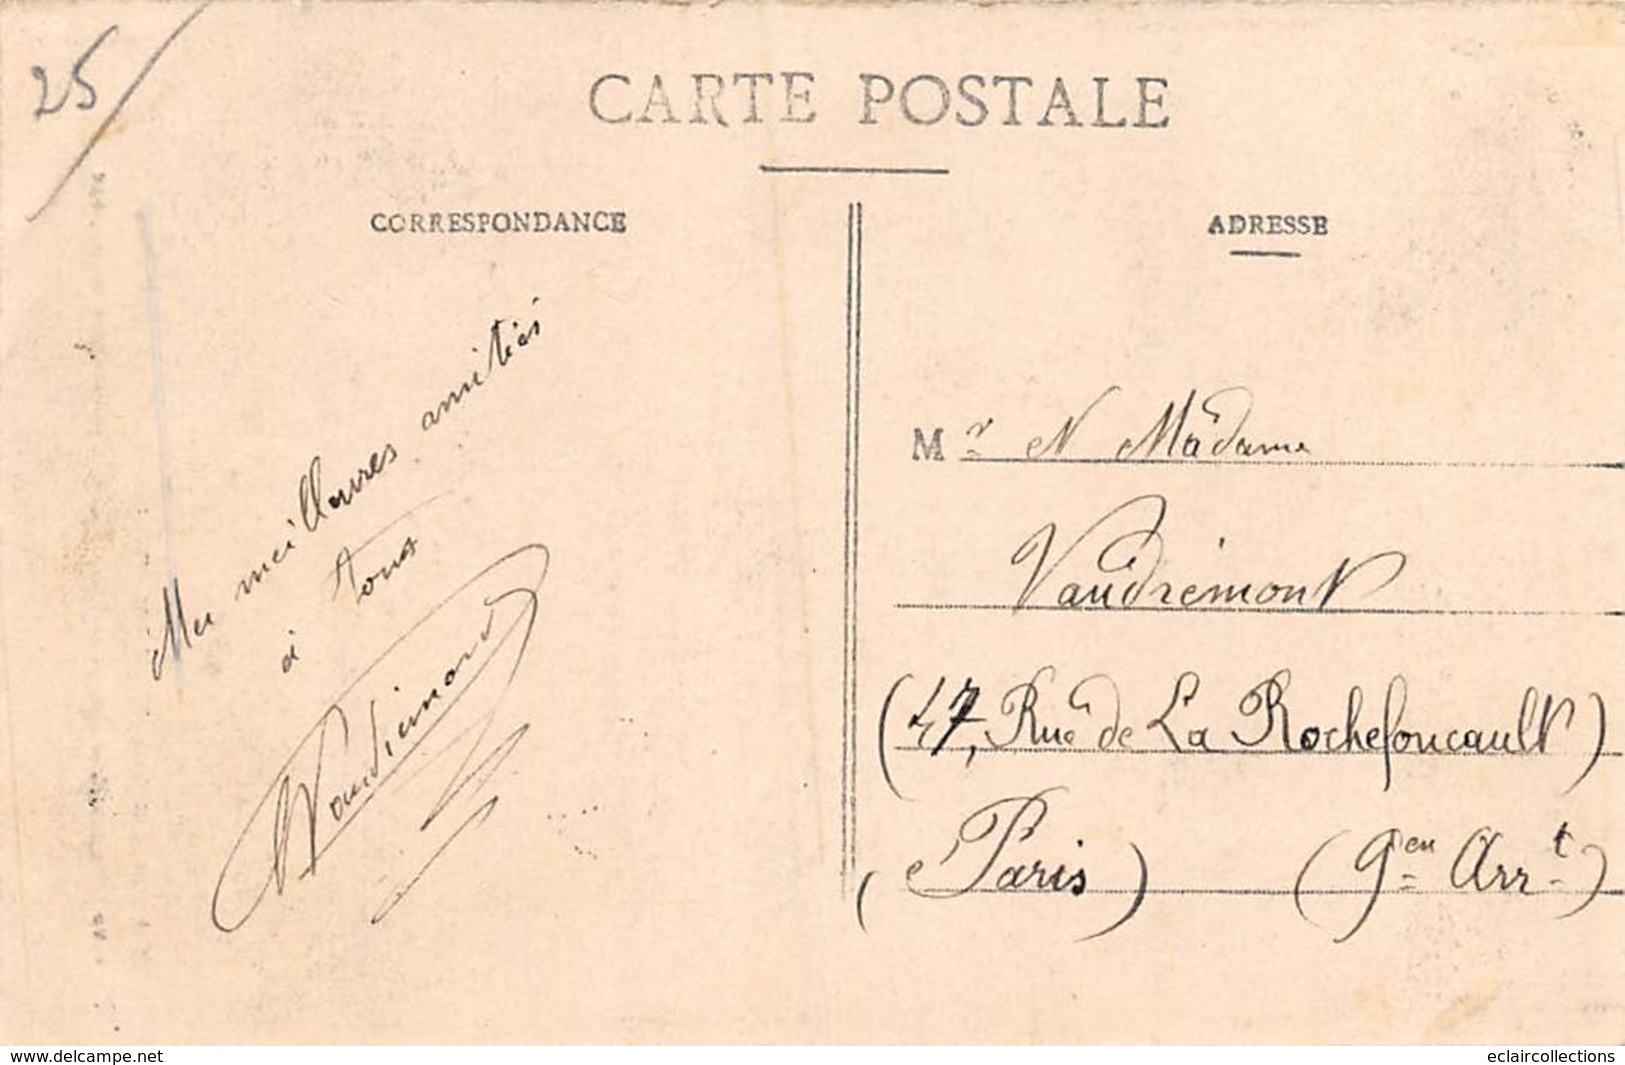 25
CARTE POSTALE
CORRESPONDANCE
ADRESSE
Mes meilleures amitiés
à tous
Mr et Madame
Vaudrémont
(47, Rue de La Rochefoucault)
(Paris) (9en Arrt)
www.delcampe.net
eclaircollections